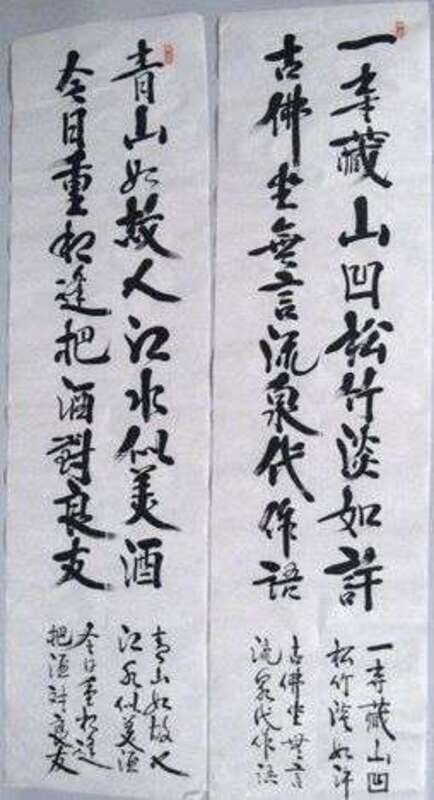 一寺藏山凹松竹淡如許
古佛坐無言流泉代作語
一寺藏山凹
松竹淡如許
古佛坐無言
流泉代作語
青山如故人江水似美酒
今日重相逢把酒對良友
青山如故人
江水似美酒
今日重相逢
把酒對良友